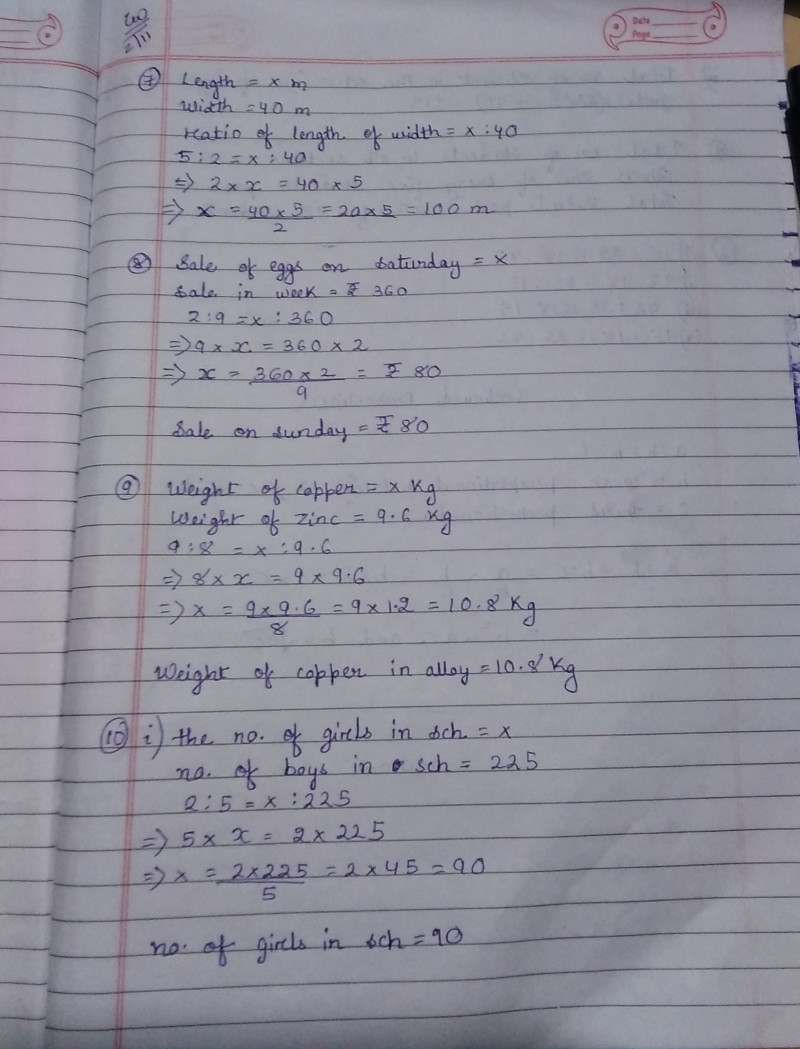 CW
2/11
Date
Page
⑦ Length = x m
Width = 40 m
ratio of length of width = x : 40
5 : 2 = x : 40
=> 2 × x = 40 × 5
=> x = 40 × 5 / 2 = 20 × 5 = 100 m
⑧ Sale of eggs on saturday = x
Sale in week = ₹ 360
2 : 9 = x : 360
=> 9 × x = 360 × 2
=> x = 360 × 2 / 9 = ₹ 80
Sale on sunday = ₹ 80
⑨ Weight of copper = x Kg
Weight of zinc = 9.6 Kg
9 : 8 = x : 9.6
=> 8 × x = 9 × 9.6
=> x = 9 × 9.6 / 8 = 9 × 1.2 = 10.8 Kg
Weight of copper in alloy = 10.8 Kg
⑩ i) the no. of girls in sch = x
no. of boys in sch = 225
2 : 5 = x : 225
=> 5 × x = 2 × 225
=> x = 2 × 225 / 5 = 2 × 45 = 90
no. of girls in sch = 90